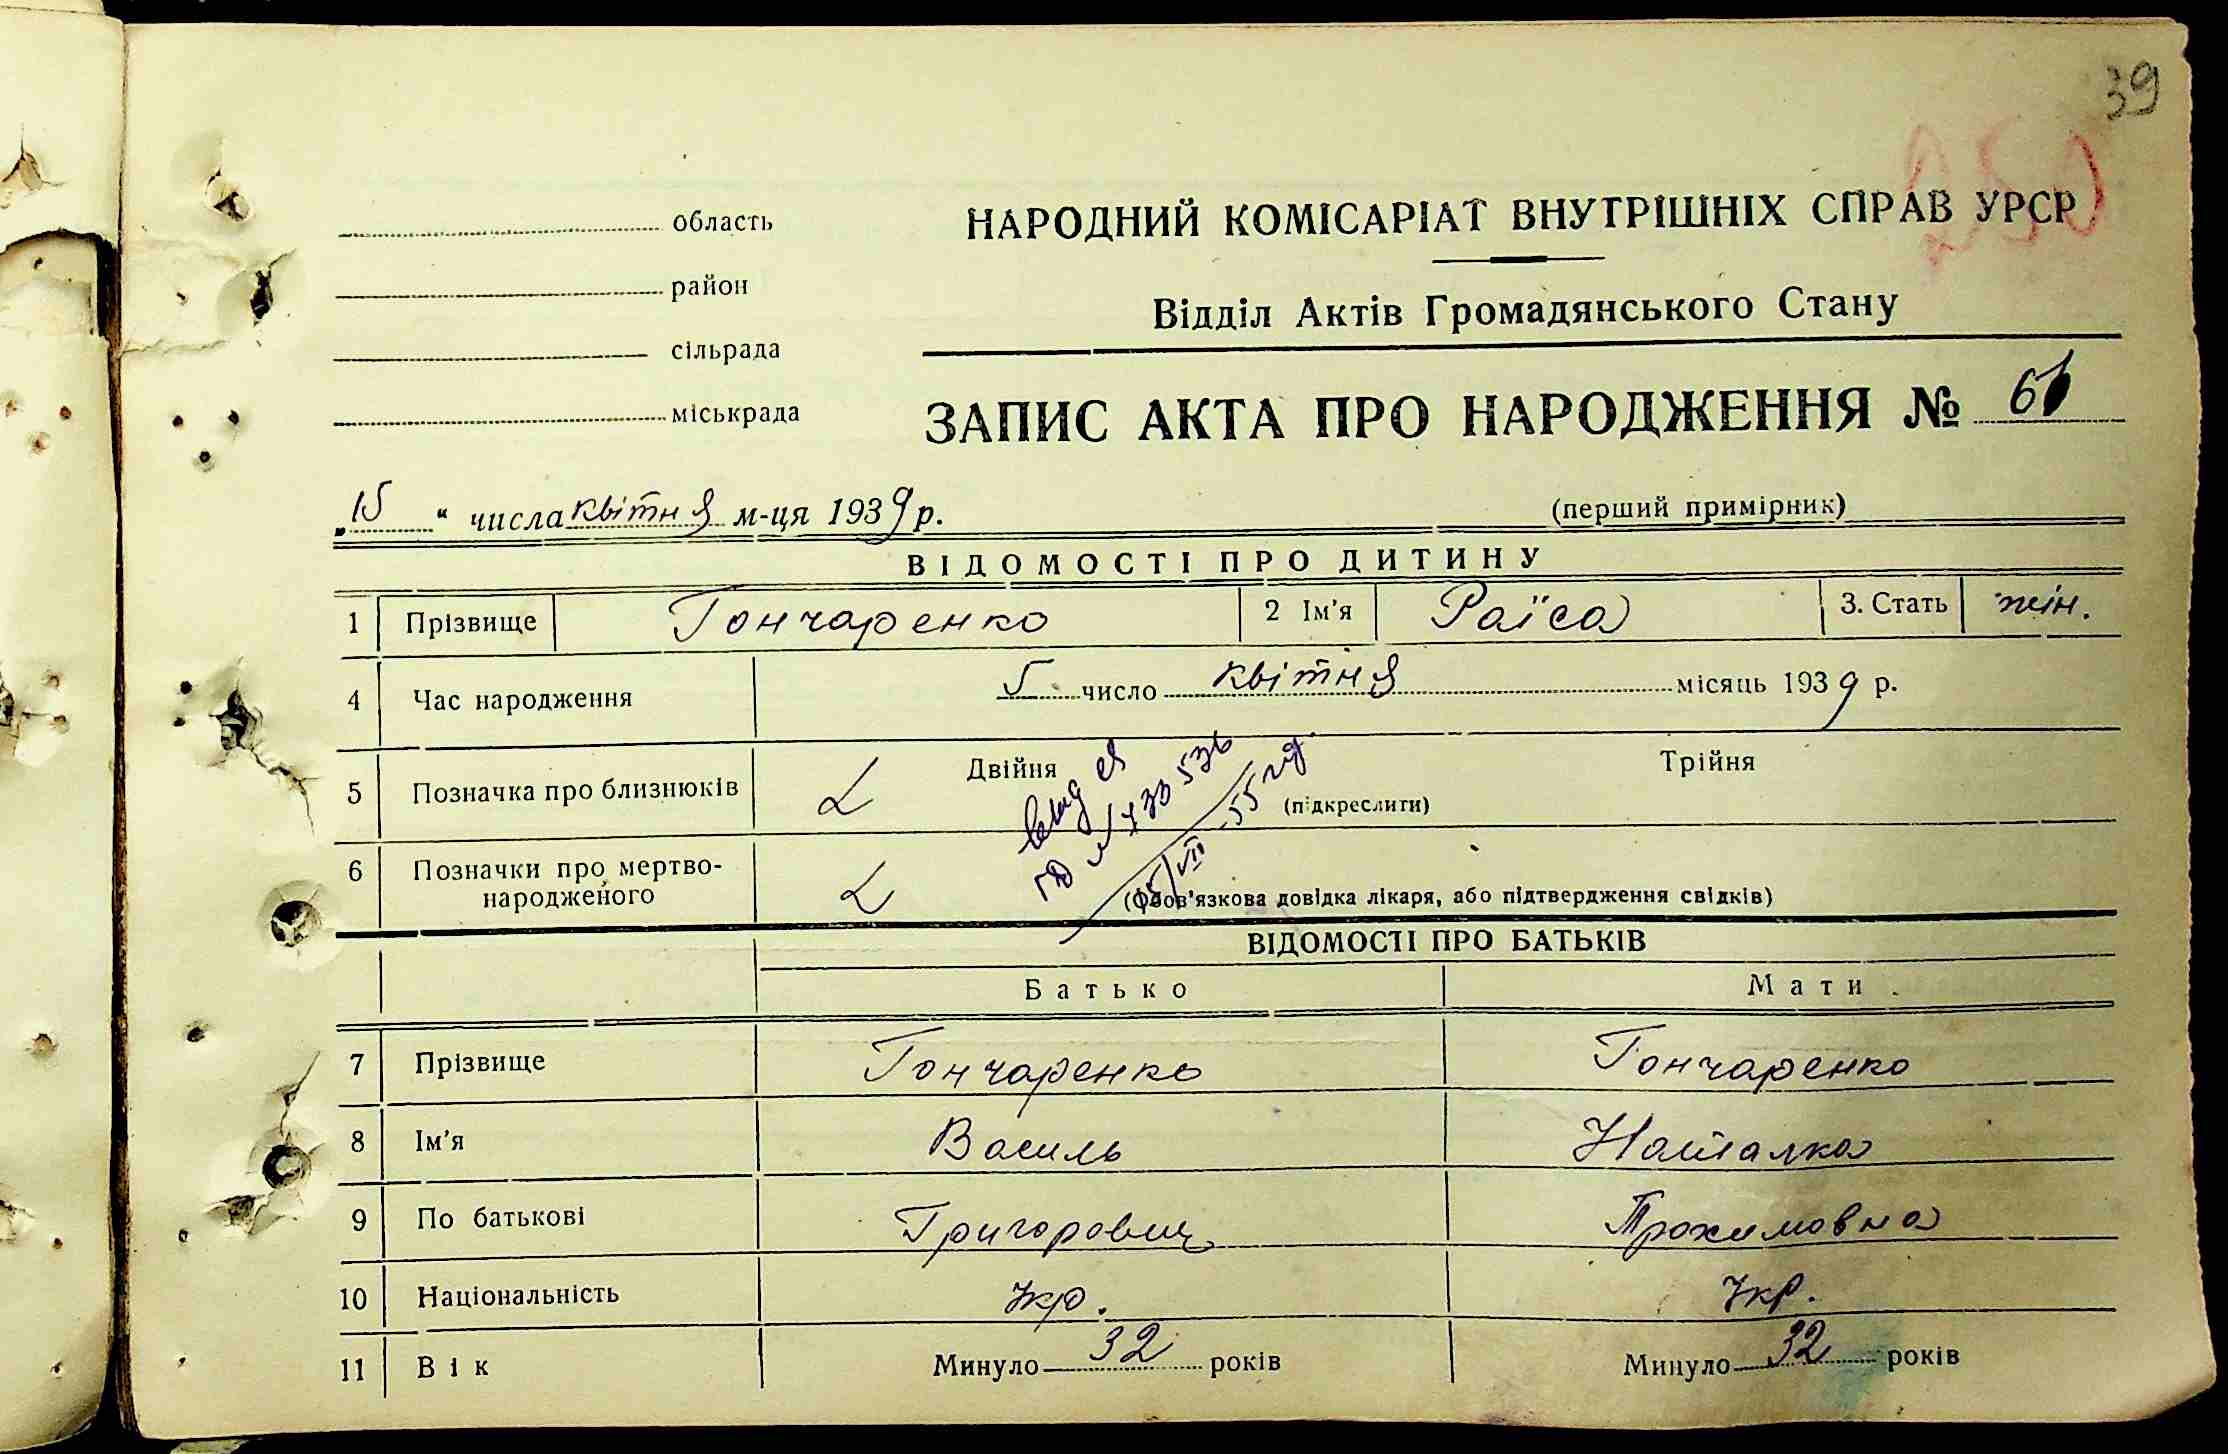 39
250
область
НАРОДНИЙ КОМІСАРІАТ ВНУТРІШНІХ СПРАВ УРСР
район
Відділ Актів Громадянського Стану
сільрада
міськрада
ЗАПИС АКТА ПРО НАРОДЖЕННЯ №
„15“ числа квітня м-ця 1939 р.
(перший примірник)
ВІДОМОСТІ ПРО ДИТИНУ
1 Прізвище Гончаренко 2 Ім'я Раїса 3. Стать жін.
4 Час народження 5 число квітня місяць 1939 р.
5 Позначка про близнюків Двійня Трійня
(підкреслити)
6 Позначки про мертво-
народженого
(Обов'язкова довідка лікаря, або підтвердження свідків)
ВІДОМОСТІ ПРО БАТЬКІВ
Батько Мати
7 Прізвище Гончаренко Гончаренко
8 Ім'я Василь Наталка
9 По батькові Григорович Трохимовна
10 Національність Укр. Укр.
11 Вік Минуло 32 років Минуло 32 років